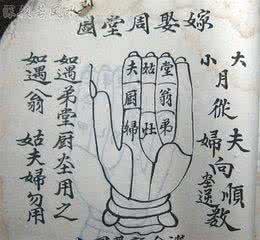 嫁娶周堂圖
大月從夫向順數
小婦
堂翁弟
姑灶
夫厨婦
如遇弟堂厨灶用之
如遇翁姑夫婦勿用